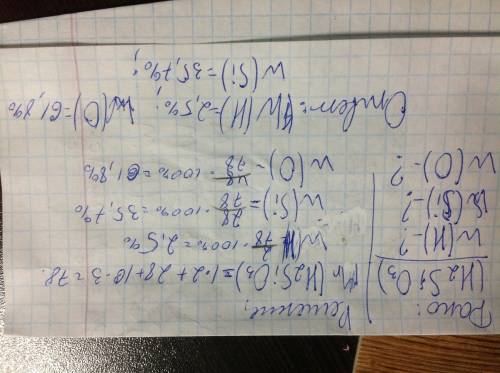 Дано:
(H2SiO3)
W(H)-?
W(Si)-?
W(O)-?
Решение:
Mr(H2SiO3)=1·2+28+16·3=78.
W(H)=2/78·100%=2,5%
W(Si)=28/78·100%=35,7%
W(O)=48/78·100%=61,8%
Ответ: W(H)=2,5%; W(O)=61,8%
W(Si)=35,7%;